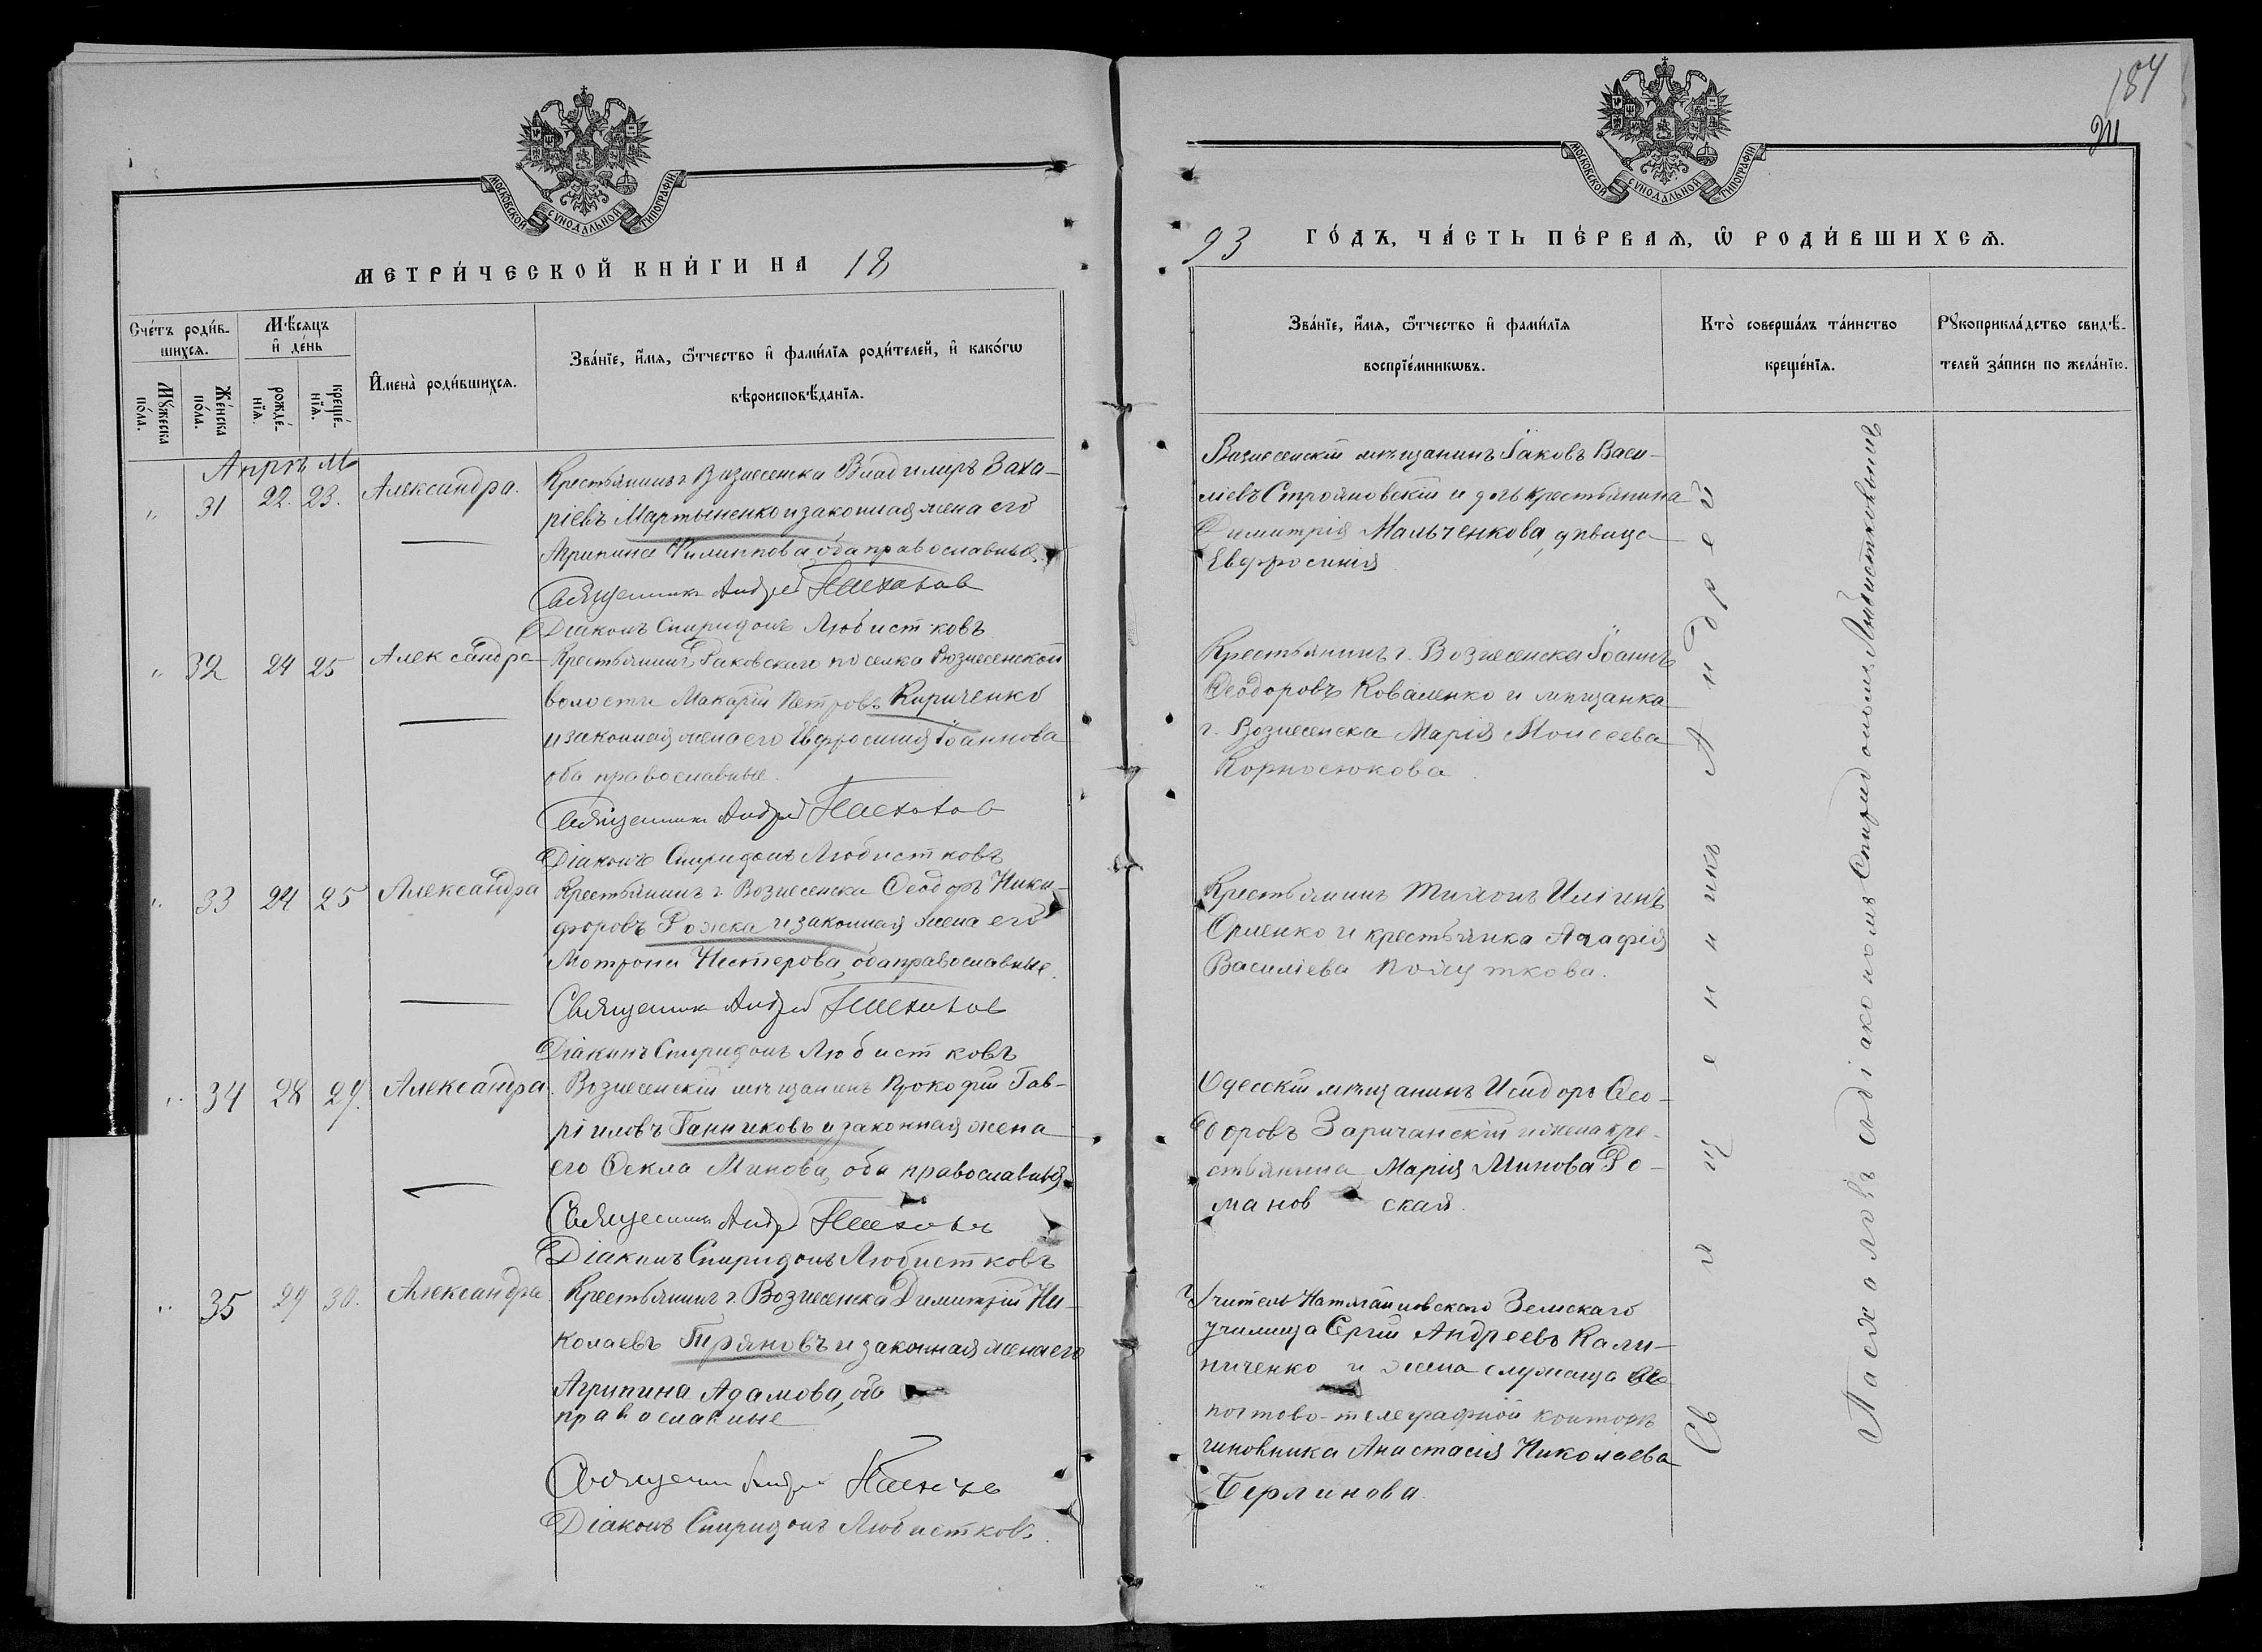 184
МОСКОВСКОЙ СѴНОДАЛЬНОЙ ТИПОГРАФІИ
МЕТРИ́ЧЕСКОЙ КНИ́ГИ НА 18
Сче́тъ роди́в-
шихсѧ.
Мѣ́сяцъ
и҆ де́нь
Мꙋ́жеска
по́ла.
Же́нска
по́ла.
рожде́-
нїѧ.
креще́-
нїѧ.
И҆мена̀ роди́вшихсѧ.
Зва́нїе, и҆́мѧ, ѻ҆́тчество и҆ фами́лїѧ роди́телей, и҆ како́гѡ
вѣроисповѣ́данїѧ.
Апрѣль
" 31 22. 23. Александра.
Крестьянинъ г. Вознесенска Владимиръ Заха-
ріевъ Мартыненко и законная жена его
Агрипина Филиппова, оба православные.
Священникъ Андрей
Діаконъ Спиридонъ Любистковъ
" 32 24 25 Александра
Крестьянинъ Раковскаго поселка Вознесенской
волости Макарій Петровъ Кириченко
и законная жена его Евфросинія Іоаннова
оба православные.
Священникъ Андрей
Діаконъ Спиридонъ Любистковъ
" 33 24 25 Александра
Крестьянинъ г. Вознесенска Ѳеодоръ Ники-
форовъ Рожка и законная жена его
Мотрона Нестерова, оба православные.
Священникъ Андрей
Діаконъ Спиридонъ Любистковъ
" 34 28 29. Александра.
Вознесенскій мѣщанинъ Прокофій Гав-
ріиловъ Ганниковъ и законная жена
его Ѳекла Минова, оба православныя
Священникъ Андрей
Діаконъ Спиридонъ Любистковъ
" 35 29 30. Александра
Крестьянинъ г. Вознесенска Димитрій Ни-
колаевъ и законная жена его
Агрипина Адамова, оба
православные
Священникъ Андрей
Діаконъ Спиридонъ Любистковъ.
МОСКОВСКОЙ СѴНОДАЛЬНОЙ ТИПОГРАФІИ
93 ГО́ДЪ, ЧА́СТЬ ПЕ́РВАѦ, Ѡ҆ РОДИ́ВШИХСѦ.
Зва́нїе, и҆́мѧ, ѻ҆́тчество и҆ фами́лїѧ
воспрїе́мникѡвъ.
Кто̀ соверша́лъ та́инство
креще́нїѧ.
Рꙋкоприкла́дство свидѣ́-
телей за́писи по жела́нїю.
Вознесенскій мѣщанинъ Іаковъ Васи-
ліевъ Строяновскій и дочь крестьянина
Димитрія Мальченкова, дѣвица
Евфросинія
Крестьянинъ г. Вознесенска Іоаннъ
Ѳеодоровъ Коваленко и мѣщанка
г. Вознесенска Марія Моисеева
Корносюкова.
Крестьянинъ Тихонъ
и крестьянка Агафія
Василіева
Одесскій мѣщанинъ Исидоръ Ѳео-
доровъ Заричанскій и жена кре-
стьянина Марія Минова Ро-
мановская.
Учитель Земскаго
училища Сергій Андреевъ Кали-
ниченко и жена служаща
почтово-телеграфной конторѣ
чиновника Анастасія Николаева
Берлинова.
Священникъ Андрей
съ діакономъ Спиридономъ Любистковымъ